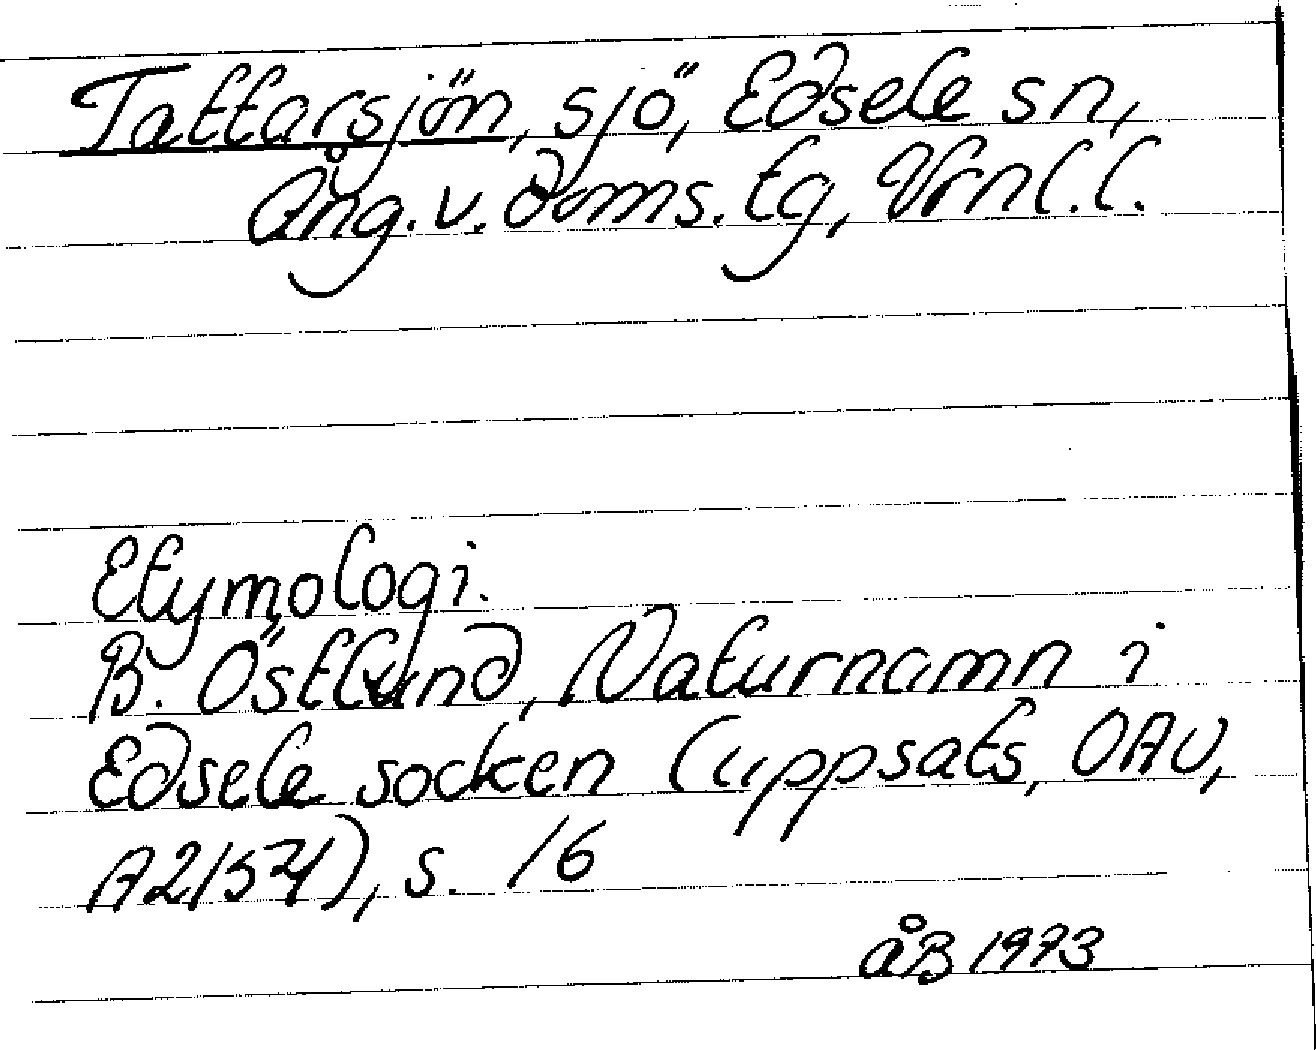 Tattarsjön, sjö, Edsele sn,
Ång. v. doms. tg, Vrnl. l.
Etymologi.
B. Östlund, Naturnamn i
Edsele socken (uppsats, OAU,
s. 16
åB 1973